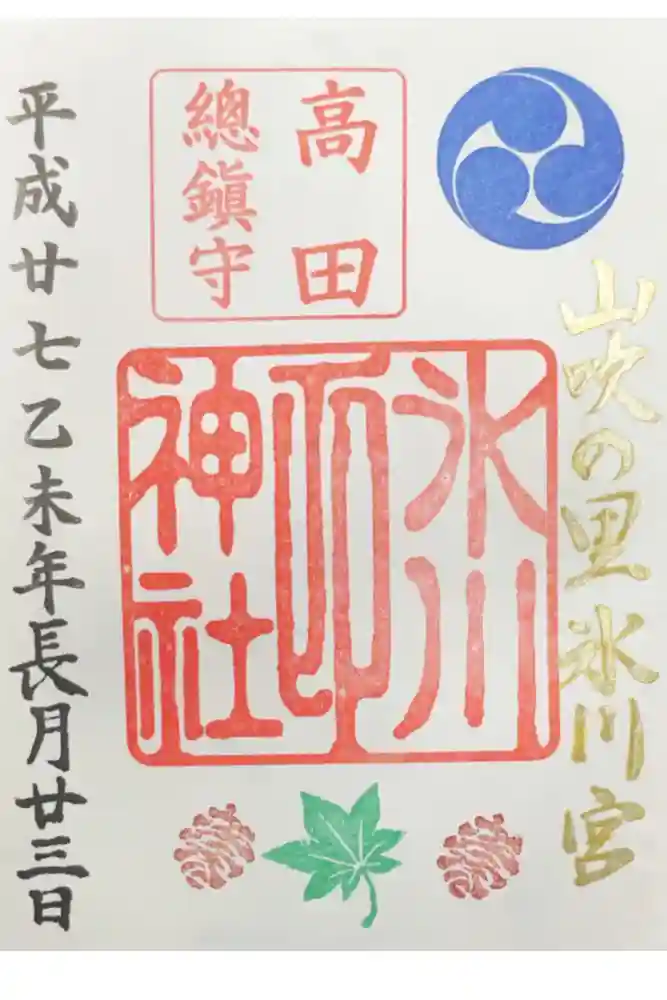 山吹の里氷川宮
高田
總鎮守
氷川
印
神社
平成廿七乙未年長月廿三日